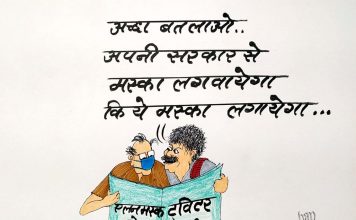 अच्छा बतलाओ..
अपनी सरकार से
मस्का लगवायेगा
कि ये मस्का लगायेगा...
एलन मस्क ट्विटर